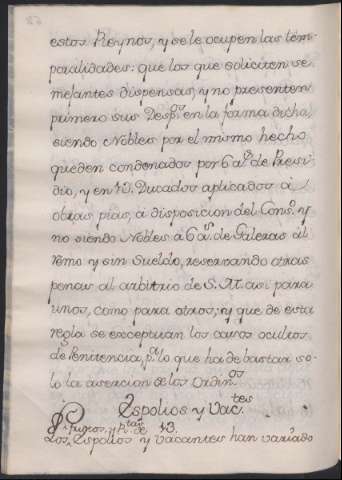 estos Reynos, y se le ocupen las tem-
poralidades: que los que soliciten se-
mejantes dispensas, y no presenten
primero sus Desp.s en la forma dicha,
siendo Nobles por el mismo hecho
queden condenados por 6 a.s de Presi-
dio, y en Ducados aplicados à
obras pias, à disposicion del Cons.o y
no siendo Nobles à 6 a.s de Galeras al
remo y sin Sueldo, reservando otras
penas al arbitrio de S. M. asi para
unos, como para otros; y que de esta
regla se exceptuan los casos ocultos
de Penitencia, p.a lo que ha de bastar so-
lo la asercion de los Ordin.os
Espolios y Vac.tes
y de 13.
Los Espolios y vacantes han variado